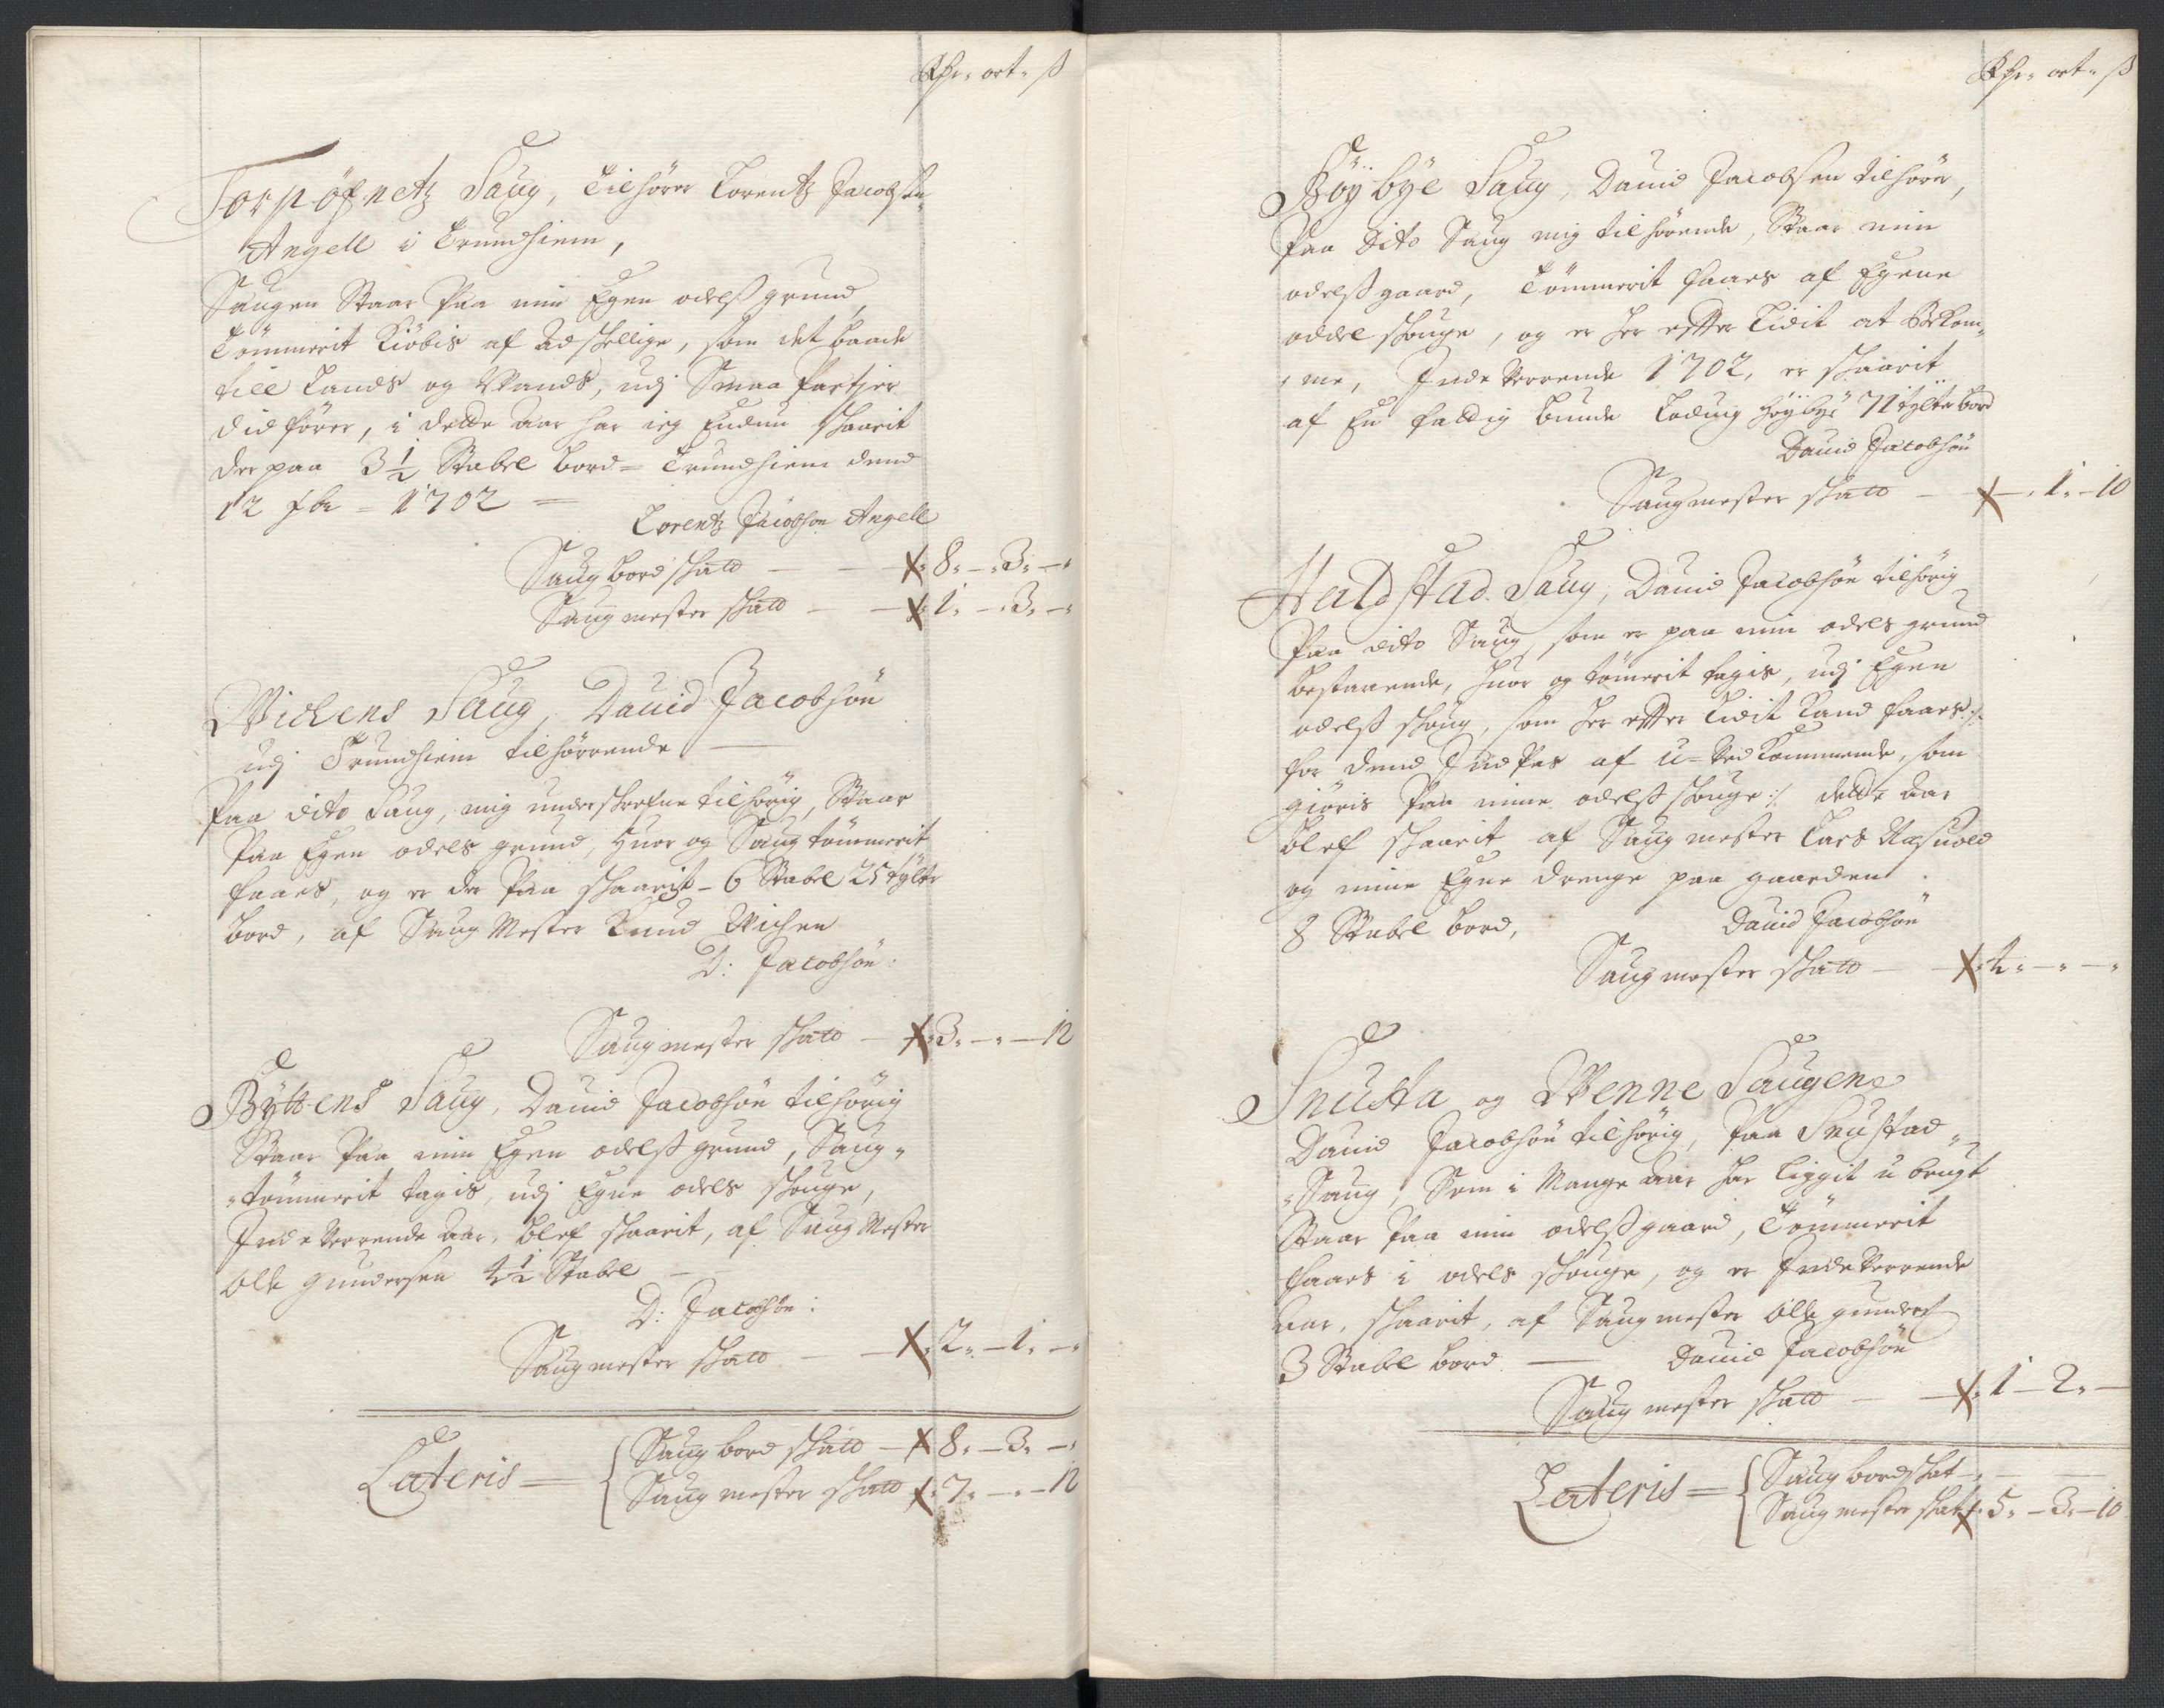 Rdr- ort- ß
Torp öfnetz Saug, Tilhörer Lorentz Jacobsen
Angell i Trundhiem,
Saugen Staar Paa min Egen odelß grund,
Tömmerit Kiöbis af Adskellige, som det baade
till Lands og Wands, udj Smaa Partjer
didförer, i dette aar har ieg Endnu skaarit
der paa 3½ Stabel bord = Trundhiem dend
12 = 1702 =
Lorentz Jacobsen Angell
Saug bord skatt - - 8 - 3 -
Saug mester skatt - - 1 - 3 -
Wichens Saug, Dauid Jacobsön
udj Trundhiem tilhörrende -
Paa dito Saug, mig underskrefne tilhörig, Staar
Paa Egen odels grund, huor og Saug tömmerit
faaes, og er der Paa skaarit - 6 Stabel 25 tylter
bord, af Saug Mester Knud Wichen
D: Jacobsön:
Saugmester skatt - 3 - - 12
Byttens Saug, Dauid Jacobsön tilhörig
Staar Paa min Egen odelß grund, Saug-
-tömmerit tagis, udj Egne odels skouge,
Inde Verrende Aar, blef skaarit, af Saug Mester
Olle Gundersen 4½ Stabel -
D: Jacobsön:
Saugmester skatt - - 2 - 1 -
Lateris = Saug bord skatt - 8 - 3 -
Saug mester skatt 7 - - 12
Rdr- ort- ß
Böybye Saug, Dauid Jacobsen tilhörer,
Paa Dito Saug mig tilhörende, Staar min
odelß gaard, Tömmerit faaes af Egene
oddel skouge, og er her effter Lidit at Bekom-
-me, Inde Verrende 1702, er skaarit
af En faldig bunde Lodvig Höybye 71 tylter bord
Dauid Jacobsön
Saugmester skatt - - 1 - 10
Haldstad Saug, Dauid Jacobsön tilhörig
Paa dito Saug, som er paa min odels grund
bestaaende, huor og tömerit tagis, udj Egen
odelß skoug, som her effter Lidit Kand faaes :/:
for dend Ind Pas af u-Vedkommende, som
giöris Paa mine odelß skouge :/: dette Aar
blef skaarit af Saug mester Lars
og mine Egne drenge paa gaarden.
8 Stabel bord,
Dauid Jacobsön
Saugmester skatt - - 4 - - -
Snusta og Wenne Saugene
Dauid Jacobsön tilhörig, Paa Snustad-
-Saug, Som i Mange Aar har liggit u brugt
Staar Paa min odelß gaard, Tömmerit
faaes i odels skouge, og er Inde Verrende
Aar, skaarit, af Saug mester Olle Gunders
3 Stabel bord. - Dauid Jacobsön
Saug mester skatt - - 1 - 2 -
Lateris = Saug bord skat - - -
Saug mester skatt 5 - 3 - 10